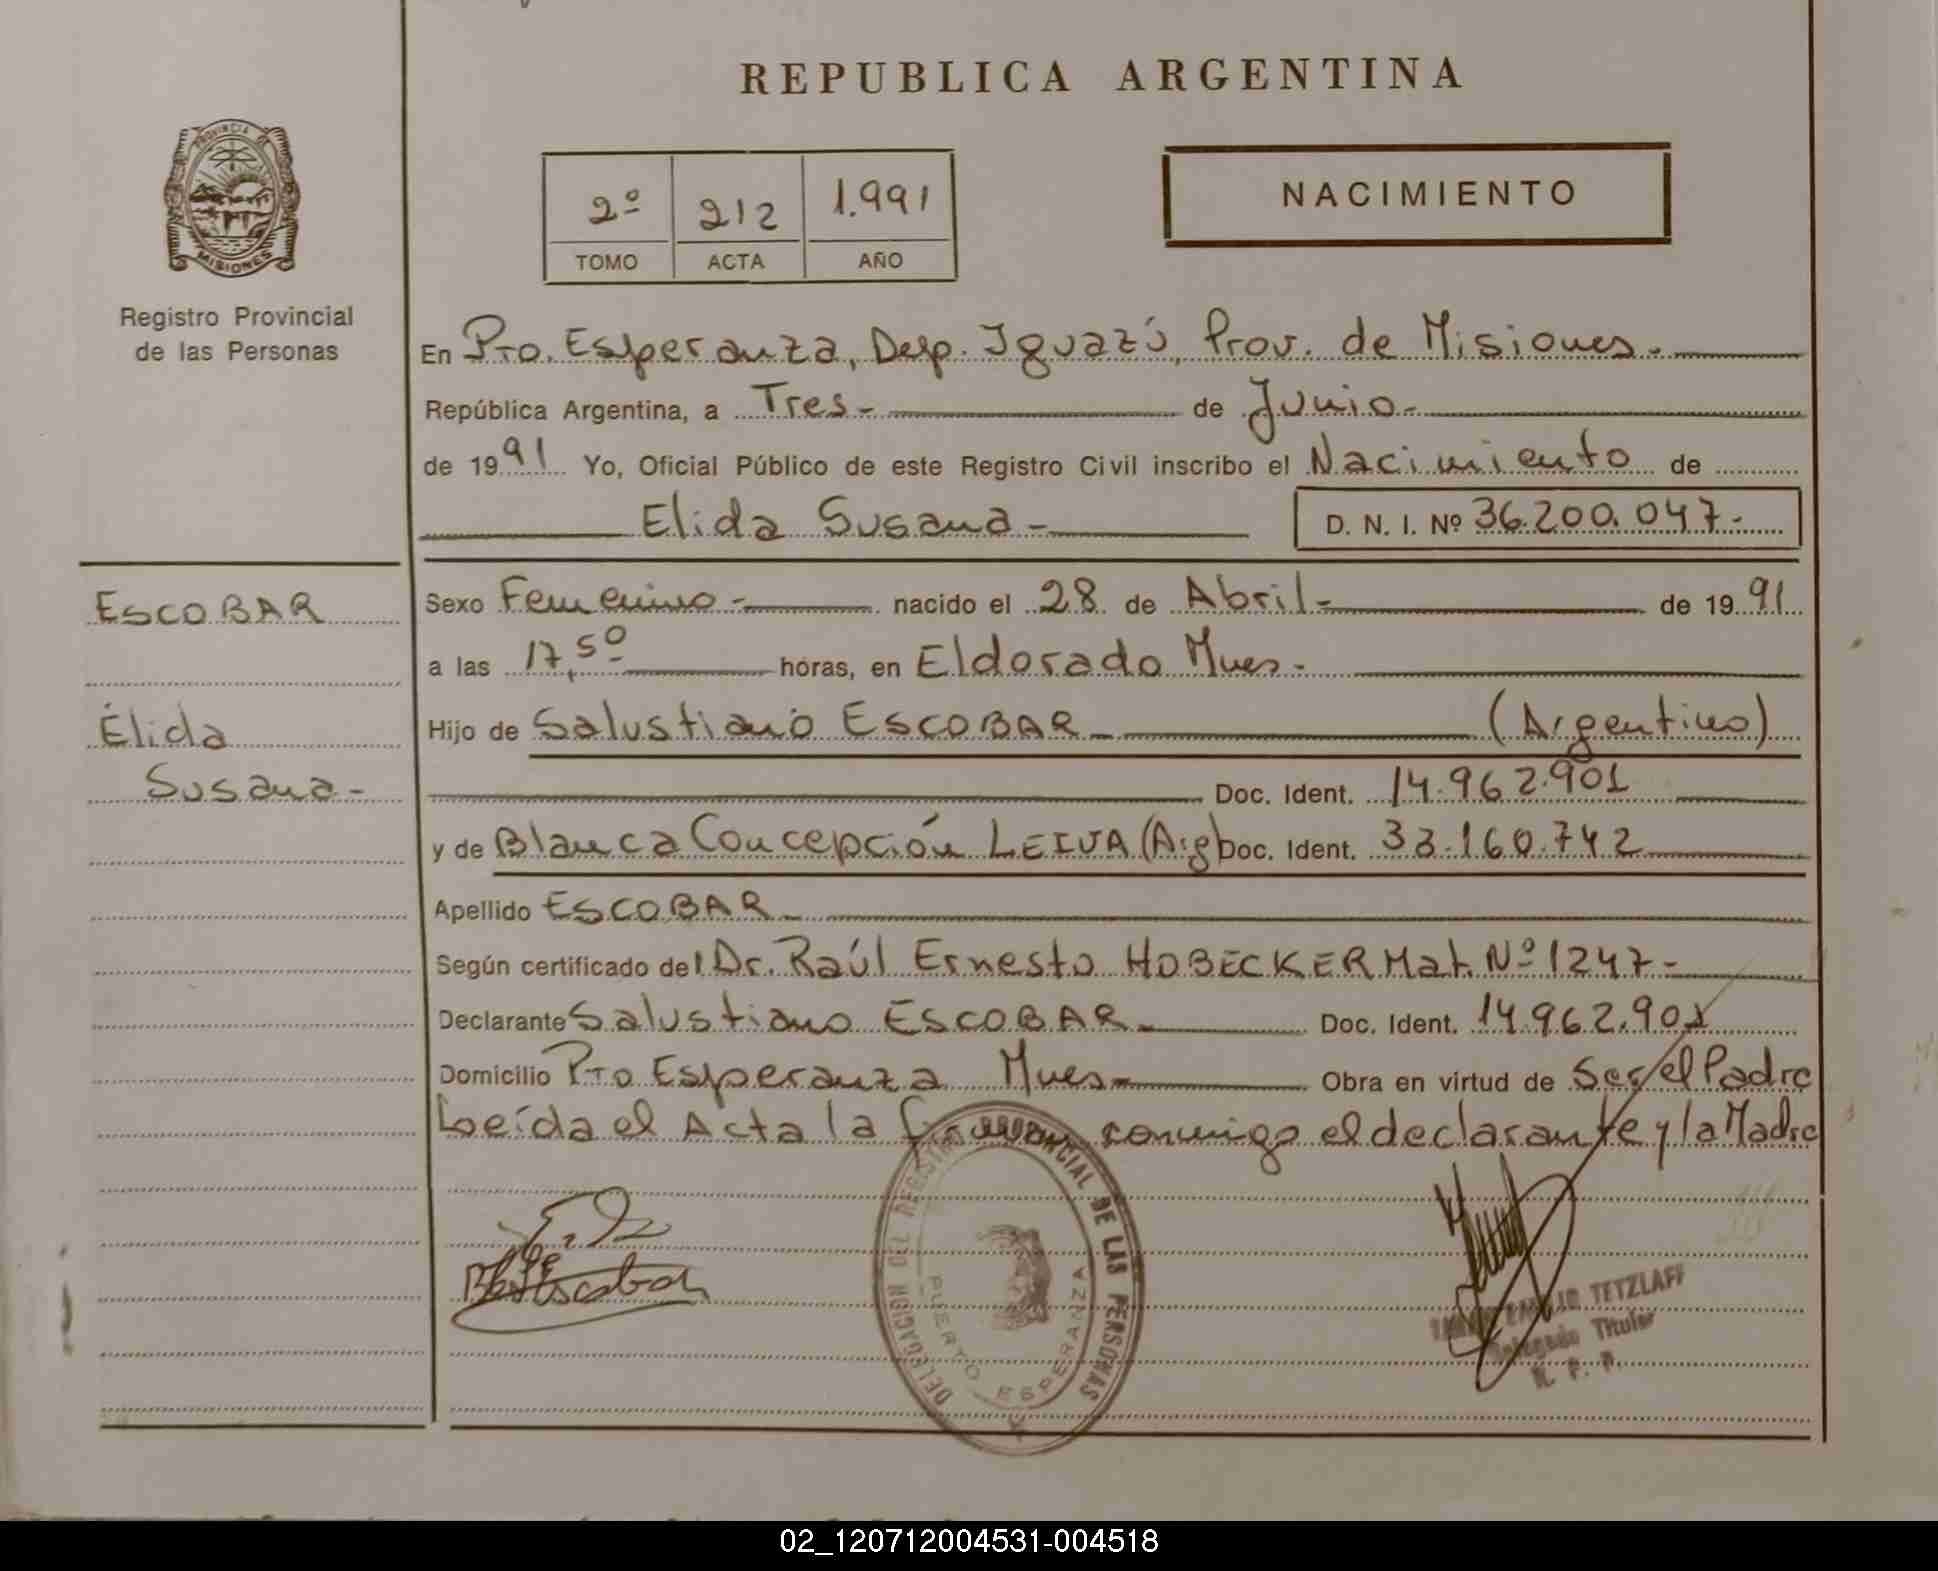 REPUBLICA ARGENTINA
PROVINCIA DE
MISIONES
Registro Provincial
de las Personas
2º 212 1.991
TOMO ACTA AÑO
NACIMIENTO
En Pto. Esperanza, Dep. Iguazú, Prov. de Misiones.-
República Argentina, a Tres- de Junio-
de 1991 Yo, Oficial Público de este Registro Civil inscribo el Nacimiento de
Elida Susana-
D. N. I. Nº 36.200.047-
ESCOBAR
Élida
Susana-
Sexo Femenino- nacido el 28 de Abril- de 1991
a las 17,50 horas, en Eldorado Mnes-
Hijo de Salustiano ESCOBAR- (Argentino)
Doc. Ident. 14.962.901
y de Blanca Concepción LEIVA (Arg) Doc. Ident. 33.160.742
Apellido ESCOBAR-
Según certificado del Dr. Raúl Ernesto HOBECKER Mat. Nº 1247-
Declarante Salustiano ESCOBAR- Doc. Ident. 14.962.901
Domicilio Pto Esperanza Mnes- Obra en virtud de Ser el Padre
Leída el Acta la firman conmigo el declarante y la Madre
DELEGACION DEL REGISTRO PROVINCIAL DE LAS PERSONAS
PUERTO ESPERANZA
Escobar
TETZLAFF
Delegado Titular
R. P. P.
02_120712004531-004518